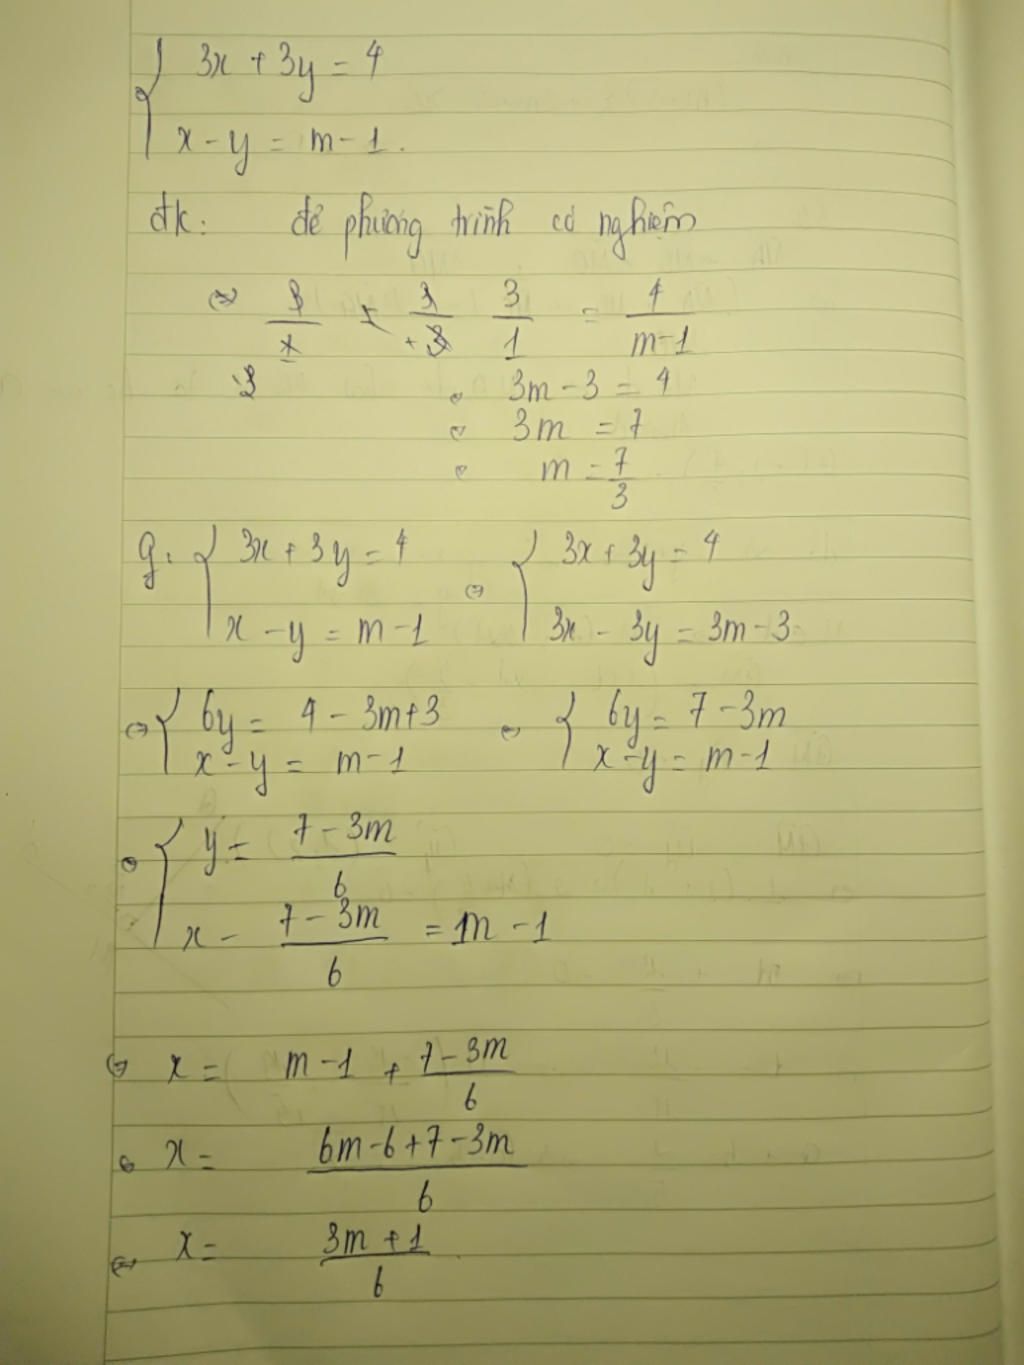 3x + 3y = 4
x - y = m - 1.
đk: để phương trình có nghiệm
⇔ 3/1 = 4/(m-1)
⇔ 3m - 3 = 4
⇔ 3m = 7
⇔ m = 7/3
g: { 3x + 3y = 4 ⇔ { 3x + 3y = 4
x - y = m - 1 3x - 3y = 3m - 3
⇔ { 6y = 4 - 3m + 3 ⇔ { 6y = 7 - 3m
x - y = m - 1 x - y = m - 1
⇔ { y = (7 - 3m)/6
x - (7 - 3m)/6 = m - 1
⇔ x = m - 1 + (7 - 3m)/6
⇔ x = (6m - 6 + 7 - 3m)/6
⇔ x = (3m + 1)/6